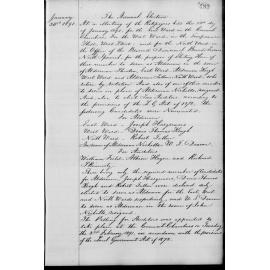 January
28th 1891
The Annual Election
At a Meeting of the Ratepayers held this 28th day
of January 1891, for the East Ward in the Council
Chambers, For the West Ward in the Temperance
Hall, West Ward, and for the North Ward in
the Office of the
North
for the purpose of electing three of
their number to serve as Aldermen in the room
of Aldermen East Ward, Alderman Hogh
West Ward and Alderman Fuller North Ward, who
retire by rotation. And also of one of their number
to serve in place of Alderman Nicholls, resigned
And also to elect Two Auditors according to
the provisions of the L G Act of 1878. The
following Candidates were Nominated.
For Aldermen
East Ward - Joseph Hargreaves
West Ward - Thomas Hogh
North Ward - Robert Fuller
In room of Alderman Nicholls W. J.
For Auditors
William Field, Albion Hayes and Richard
There being only the required number of Candidates
for Aldermen Joseph Hargreaves, Thomas
Hogh and Robert Fuller were declared duly
elected to serve as Aldermen for the East West
and North Wards respectively, and W. J.
to serve as Alderman in the room of John
Nicholls resigned.
The Polling for Auditors was appointed to
take place at the Council Chambers on Tuesday
the 3rd February 1891, in accordance with the provisions
of the Local Government Act of 1878.